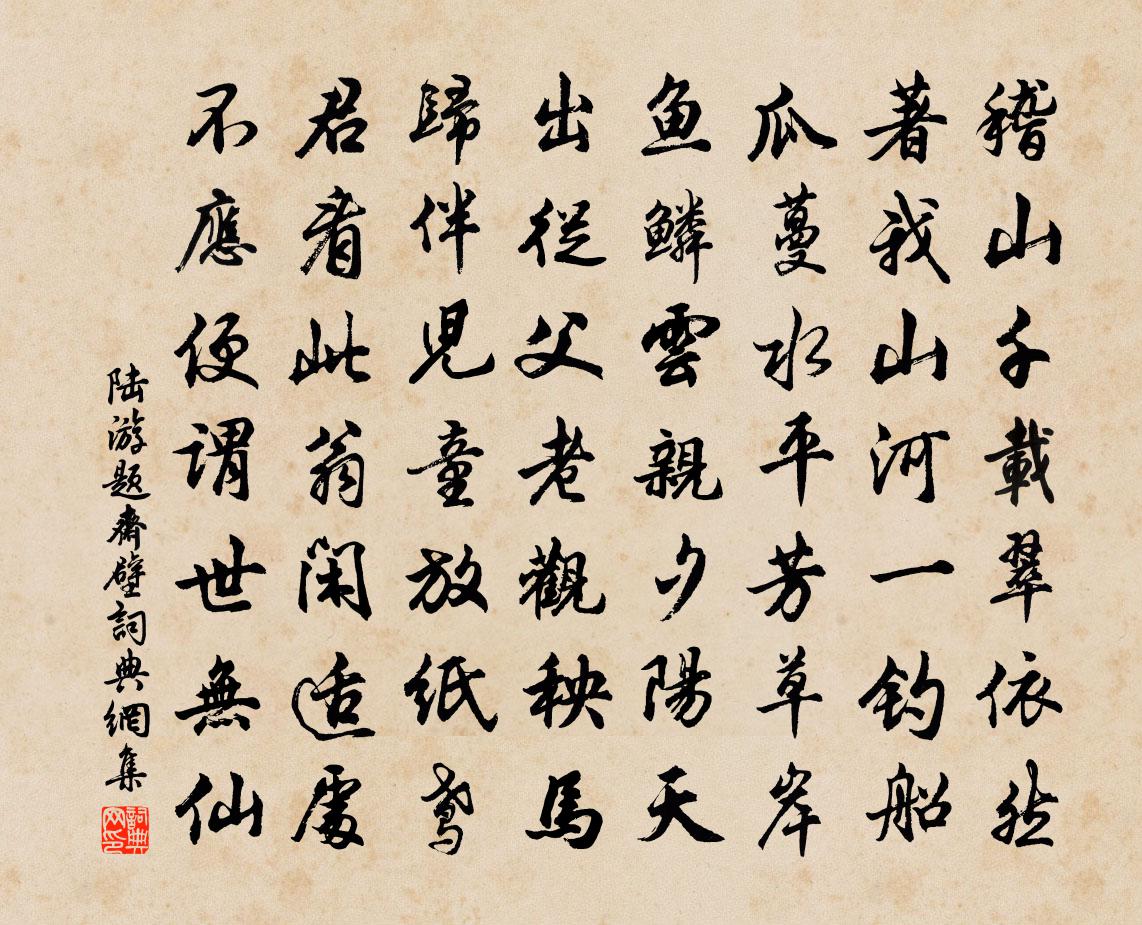 稽山千載翠依然
著我山河一釣船
瓜蔓水平芳草岸
魚鱗雲親夕陽天
出從父老觀秧馬
歸伴兒童放紙鳶
君看此翁閑适處
不應便謂世無仙
陆游题齋壁詞典網集
詞典网印